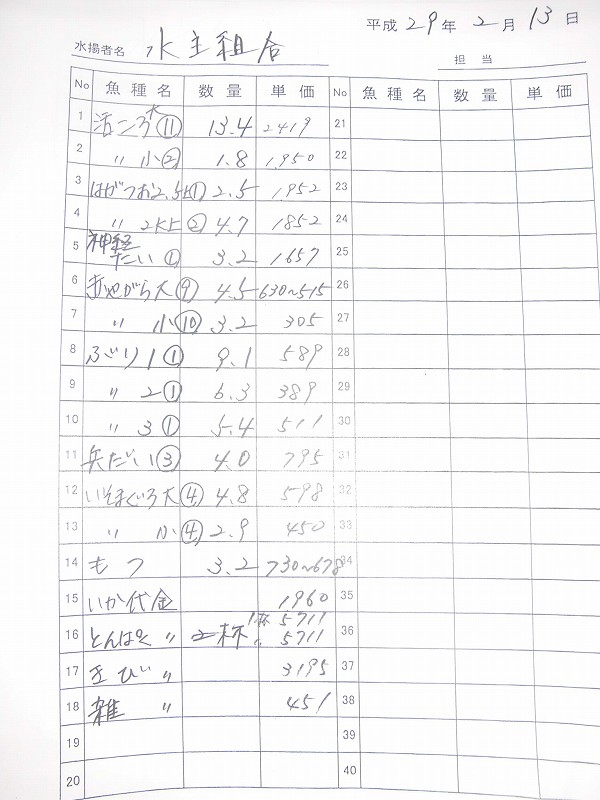 平成 29 年 2 月 13 日
水揚者名 水主組合
担当
No 魚種名 数量 単価 No 魚種名 数量 単価
1 活ころ大⑪ 13.4 2419 21
2 〃 小② 1.8 1,950 22
3 はがつお2.5上① 2.5 1,952 23
4 〃 2K上② 4.7 1852 24
5 神経たい① 3.2 1657 25
6 赤やがら大⑨ 4.5 630~515 26
7 〃 小⑩ 3.2 305 27
8 ぶり1① 9.1 589 28
9 〃 2① 6.3 389 29
10 〃 3① 5.4 511 30
11 兵だい③ 4.0 795 31
12 いそまぐろ大④ 4.8 598 32
13 〃 小④ 2.9 450 33
14 もつ 3.2 730~678 34
15 いか代金 1960 35
16 とんぱく 〃 2杯 1杯 5711 〃 5711 36
17 きび 〃 3195 37
18 雑 〃 451 38
19 39
20 40